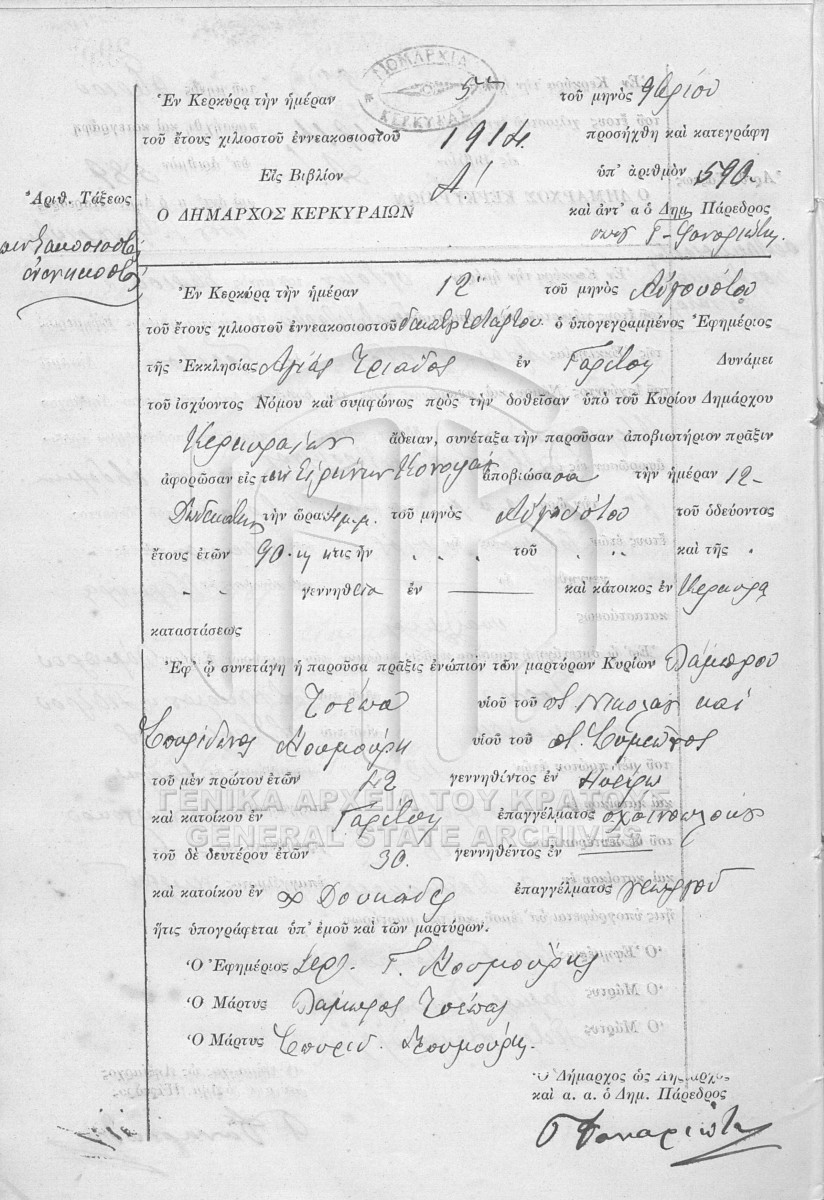 ΔΗΜΑΡΧΙΑ ΚΕΡΚΥΡΑΣ
Ἐν Κερκύρᾳ τὴν ἡμέραν 5ην τοῦ μηνὸς 9βρίου
τοῦ ἔτους χιλιοστοῦ ἐννεακοσιοστοῦ 1914 προσήχθη καὶ κατεγράφη
Εἰς Βιβλίον Α! ὑπ' ἀριθμὸν 590
Ἀριθ. Τάξεως
Ο ΔΗΜΑΡΧΟΣ ΚΕΡΚΥΡΑΙΩΝ καὶ ἀντ' α ὁ Δημ. Πάρεδρος
πεντακοσιοστὴ
ἐνενηκοστὴ
Γ. Φαναριώτης
Ἐν Κερκύρᾳ τὴν ἡμέραν 12 τοῦ μηνὸς Αὐγούστου
τοῦ ἔτους χιλιοστοῦ ἐννεακοσιοστοῦ δεκάτου τετάρτου ὁ ὑπογεγραμμένος Ἐφημέριος
τῆς Ἐκκλησίας Ἁγίας Τριάδος ἐν Γαρίτσῃ Δυνάμει
τοῦ ἰσχύοντος Νόμου καὶ συμφώνως πρὸς τὴν δοθεῖσαν ὑπὸ τοῦ Κυρίου Δημάρχου
Κερκυραίων ἄδειαν, συνέταξα τὴν παροῦσαν ἀποβιωτήριον πρᾶξιν
ἀφορῶσαν εἰς τὴν Εἰρήνην ἀποβιώσασα τὴν ἡμέραν 12
Δωδεκάτην τὴν ὥραν 4 μ.μ. τοῦ μηνὸς Αὐγούστου τοῦ ὁδεύοντος
ἔτους ἐτῶν 90 ἥτις ἦν . . . τοῦ . . . καὶ τῆς .
γεννηθεῖσα ἐν — καὶ κάτοικος ἐν Κέρκυρα
καταστάσεως
Ἐφ' ᾧ συνετάγη ἡ παροῦσα πρᾶξις ἐνώπιον τῶν μαρτύρων Κυρίων Λάμπρου
Τσέπα υἱοῦ τοῦ ποτ. Νικολάου καὶ
Σπυρίδωνος Κουμούρη υἱοῦ τοῦ ποτ.
τοῦ μὲν πρώτου ἐτῶν 42 γεννηθέντος ἐν Ἠπείρῳ
ΓΕΝΙΚΑ ΑΡΧΕΙΑ ΤΟΥ ΚΡΑΤΟΥΣ
καὶ κατοίκου ἐν Γαρίτσῃ ἐπαγγέλματος
GENERAL STATE ARCHIVES
τοῦ δὲ δευτέρου ἐτῶν 30 γεννηθέντος ἐν —
καὶ κατοίκου ἐν χ Δουκάδες ἐπαγγέλματος γεωργοῦ
ἥτις ὑπογράφεται ὑπ' ἐμοῦ καὶ τῶν μαρτύρων.
Ὁ Ἐφημέριος Ἱερ. Γ. Κουμούρης
Ὁ Μάρτυς Λάμπρος Τσέπας
Ὁ Μάρτυς Σπυρίδ. Κουμούρης
Ὁ Δήμαρχος ὡς Ληξίαρχος
καὶ α. α. ὁ Δημ. Πάρεδρος
Γ Φαναριώτης